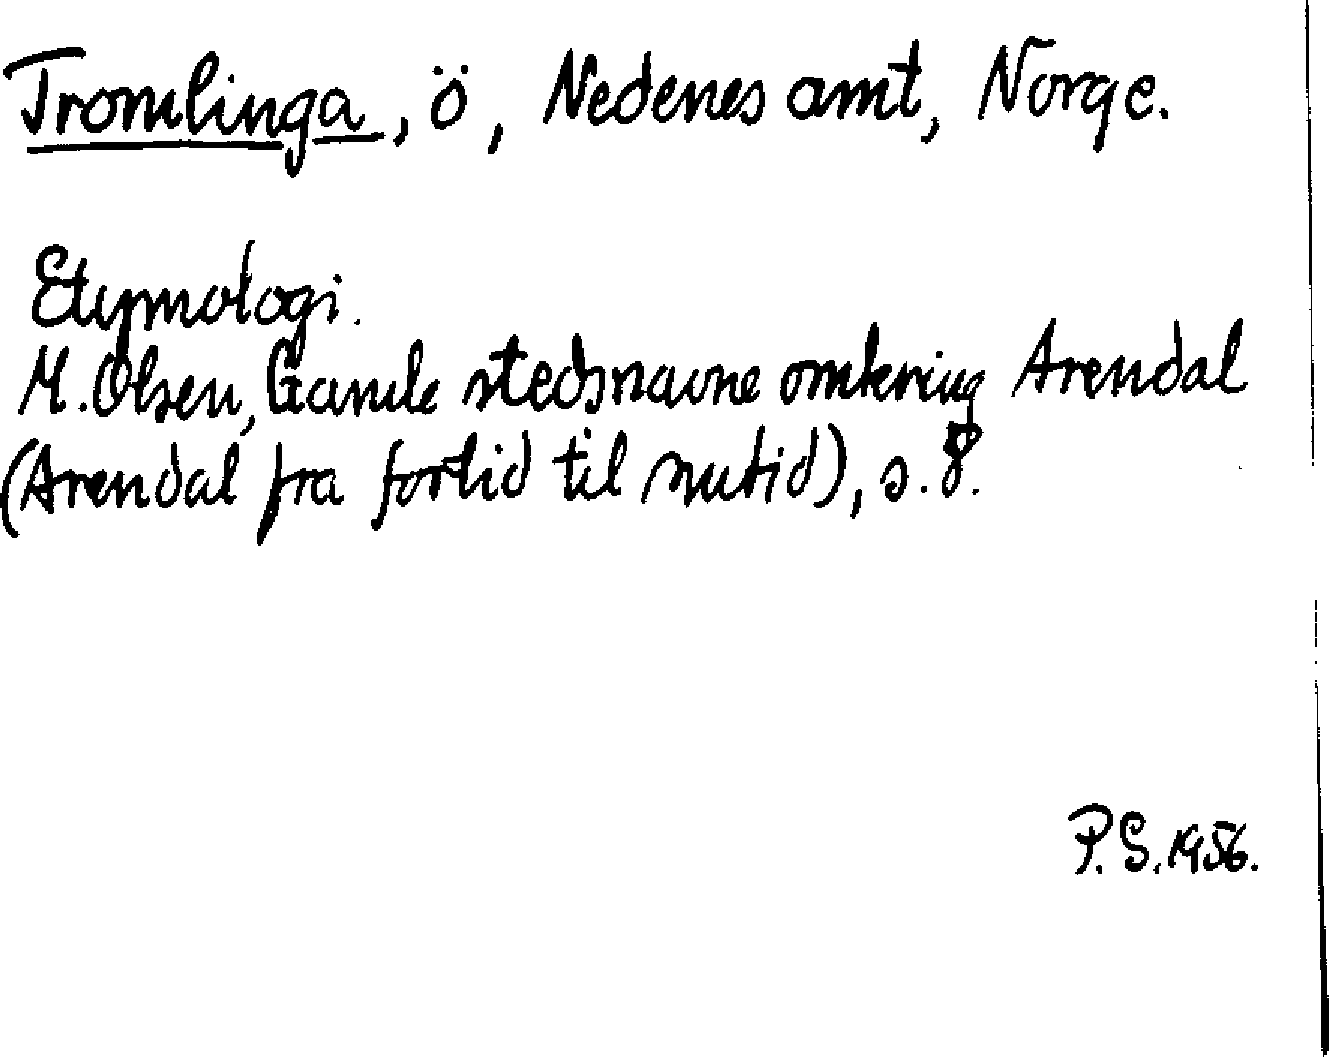 Tromlinga, ö, Nedenes amt, Norge.
Etymologi.
M. Olsen, Gamle stedsnavne omkring Arendal
(Arendal fra fortid til nutid), s. 8.
P. S. 1956.